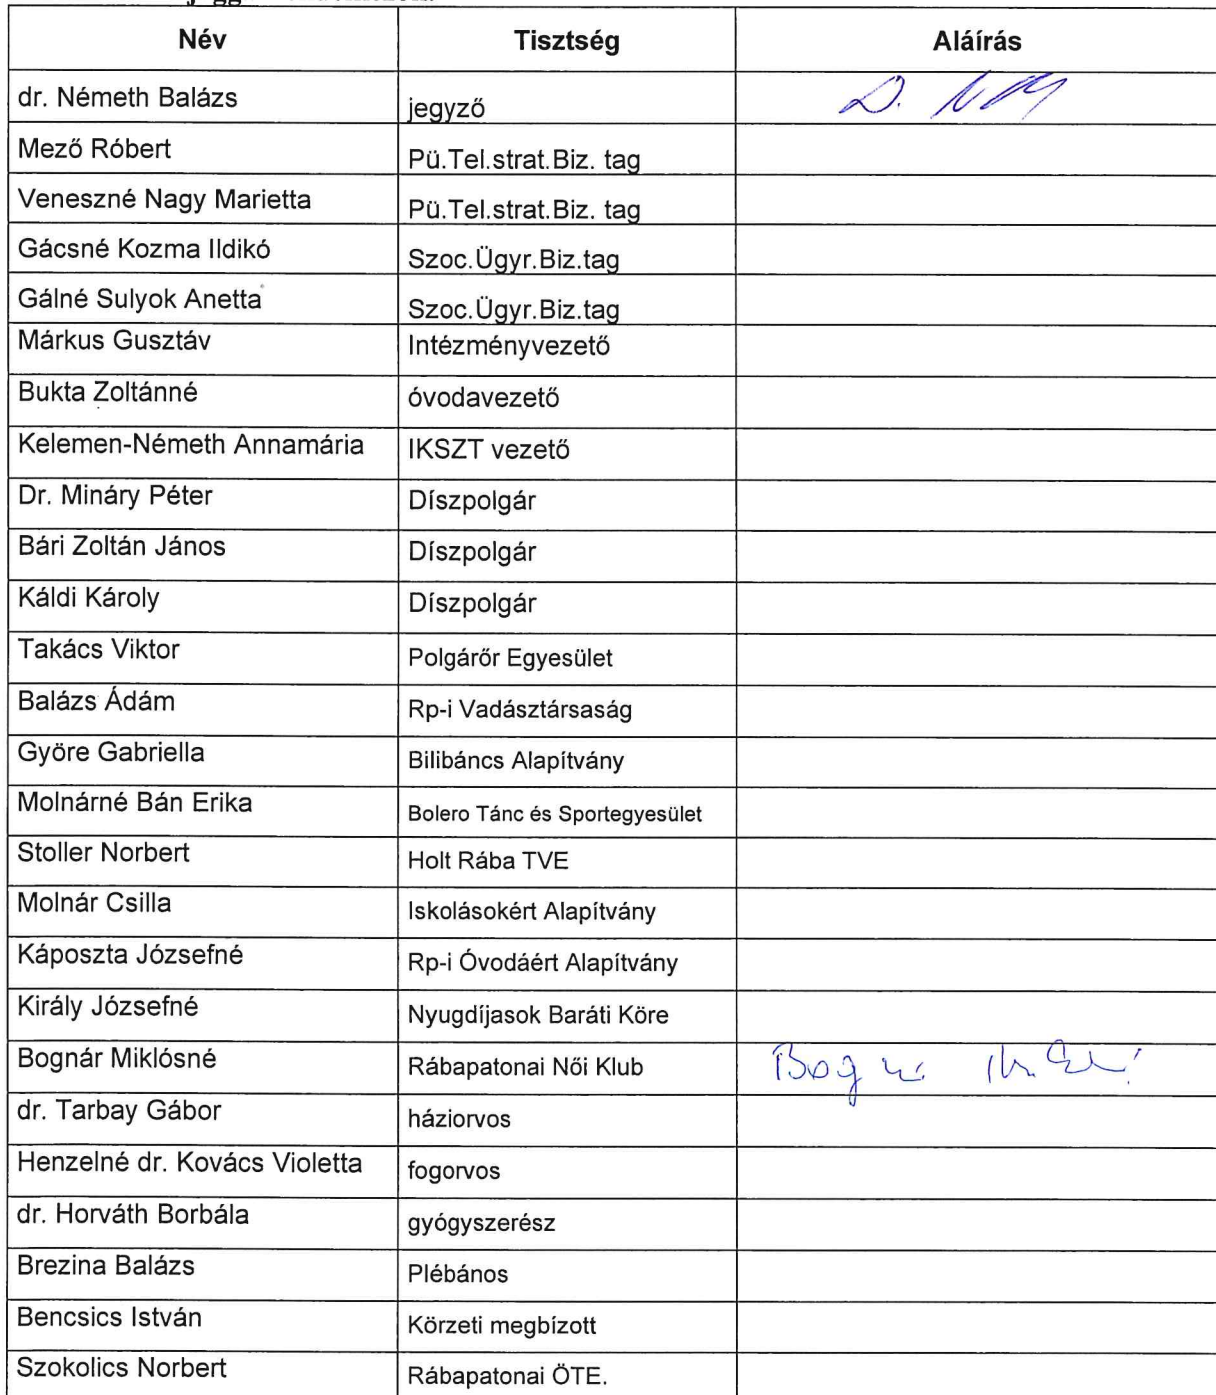 Név Tisztség Aláírás
dr. Németh Balázs jegyző
Mező Róbert Pü.Tel.strat.Biz. tag
Veneszné Nagy Marietta Pü.Tel.strat.Biz. tag
Gácsné Kozma Ildikó Szoc.Ügyr.Biz.tag
Gálné Sulyok Anetta Szoc.Ügyr.Biz.tag
Márkus Gusztáv Intézményvezető
Bukta Zoltánné óvodavezető
Kelemen-Németh Annamária IKSZT vezető
Dr. Mináry Péter Díszpolgár
Bári Zoltán János Díszpolgár
Káldi Károly Díszpolgár
Takács Viktor Polgárőr Egyesület
Balázs Ádám Rp-i Vadásztársaság
Györe Gabriella Bilibáncs Alapítvány
Molnárné Bán Erika Bolero Tánc és Sportegyesület
Stoller Norbert Holt Rába TVE
Molnár Csilla Iskolásokért Alapítvány
Káposzta Józsefné Rp-i Óvodáért Alapítvány
Király Józsefné Nyugdíjasok Baráti Köre
Bognár Miklósné Rábapatonai Női Klub
dr. Tarbay Gábor háziorvos
Henzelné dr. Kovács Violetta fogorvos
dr. Horváth Borbála gyógyszerész
Brezina Balázs Plébános
Bencsics István Körzeti megbízott
Szokolics Norbert Rábapatonai ÖTE.